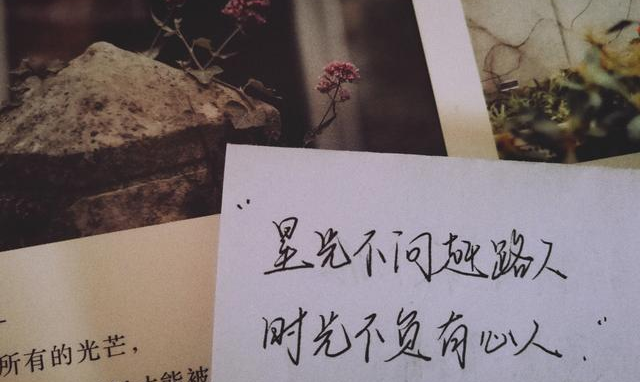 “星光不问赶路人
时光不负有心人.”
所有的光芒，
能被